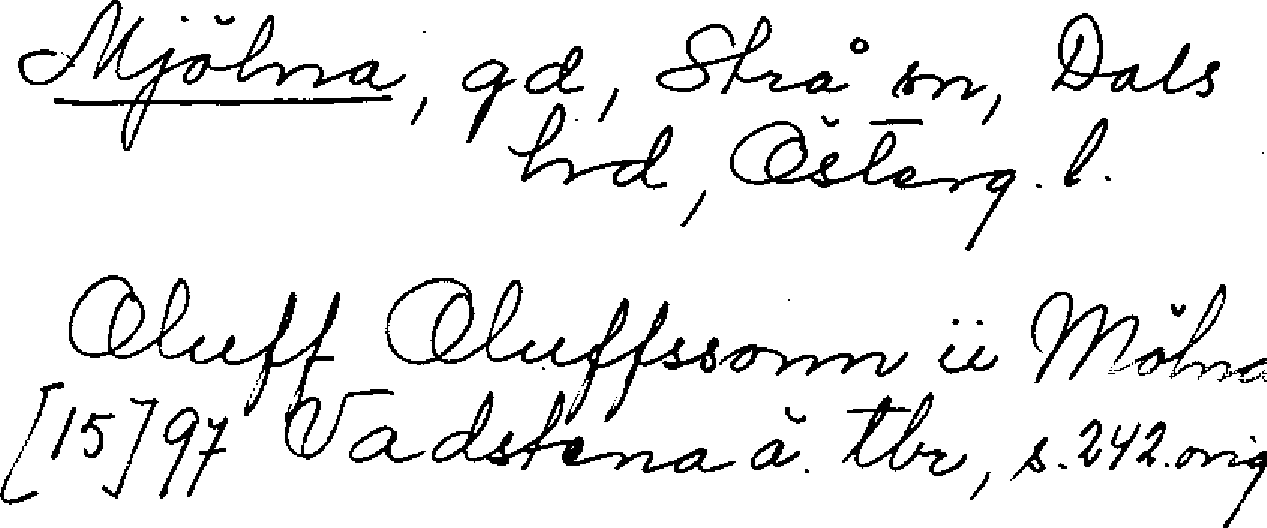 Mjölna, gd, Strå sn, Dals
hrd, Österg. l.
Oluff Oluffssonn ii Mölna
[15]97 Vadstena ä. tbr, s. 242. orig